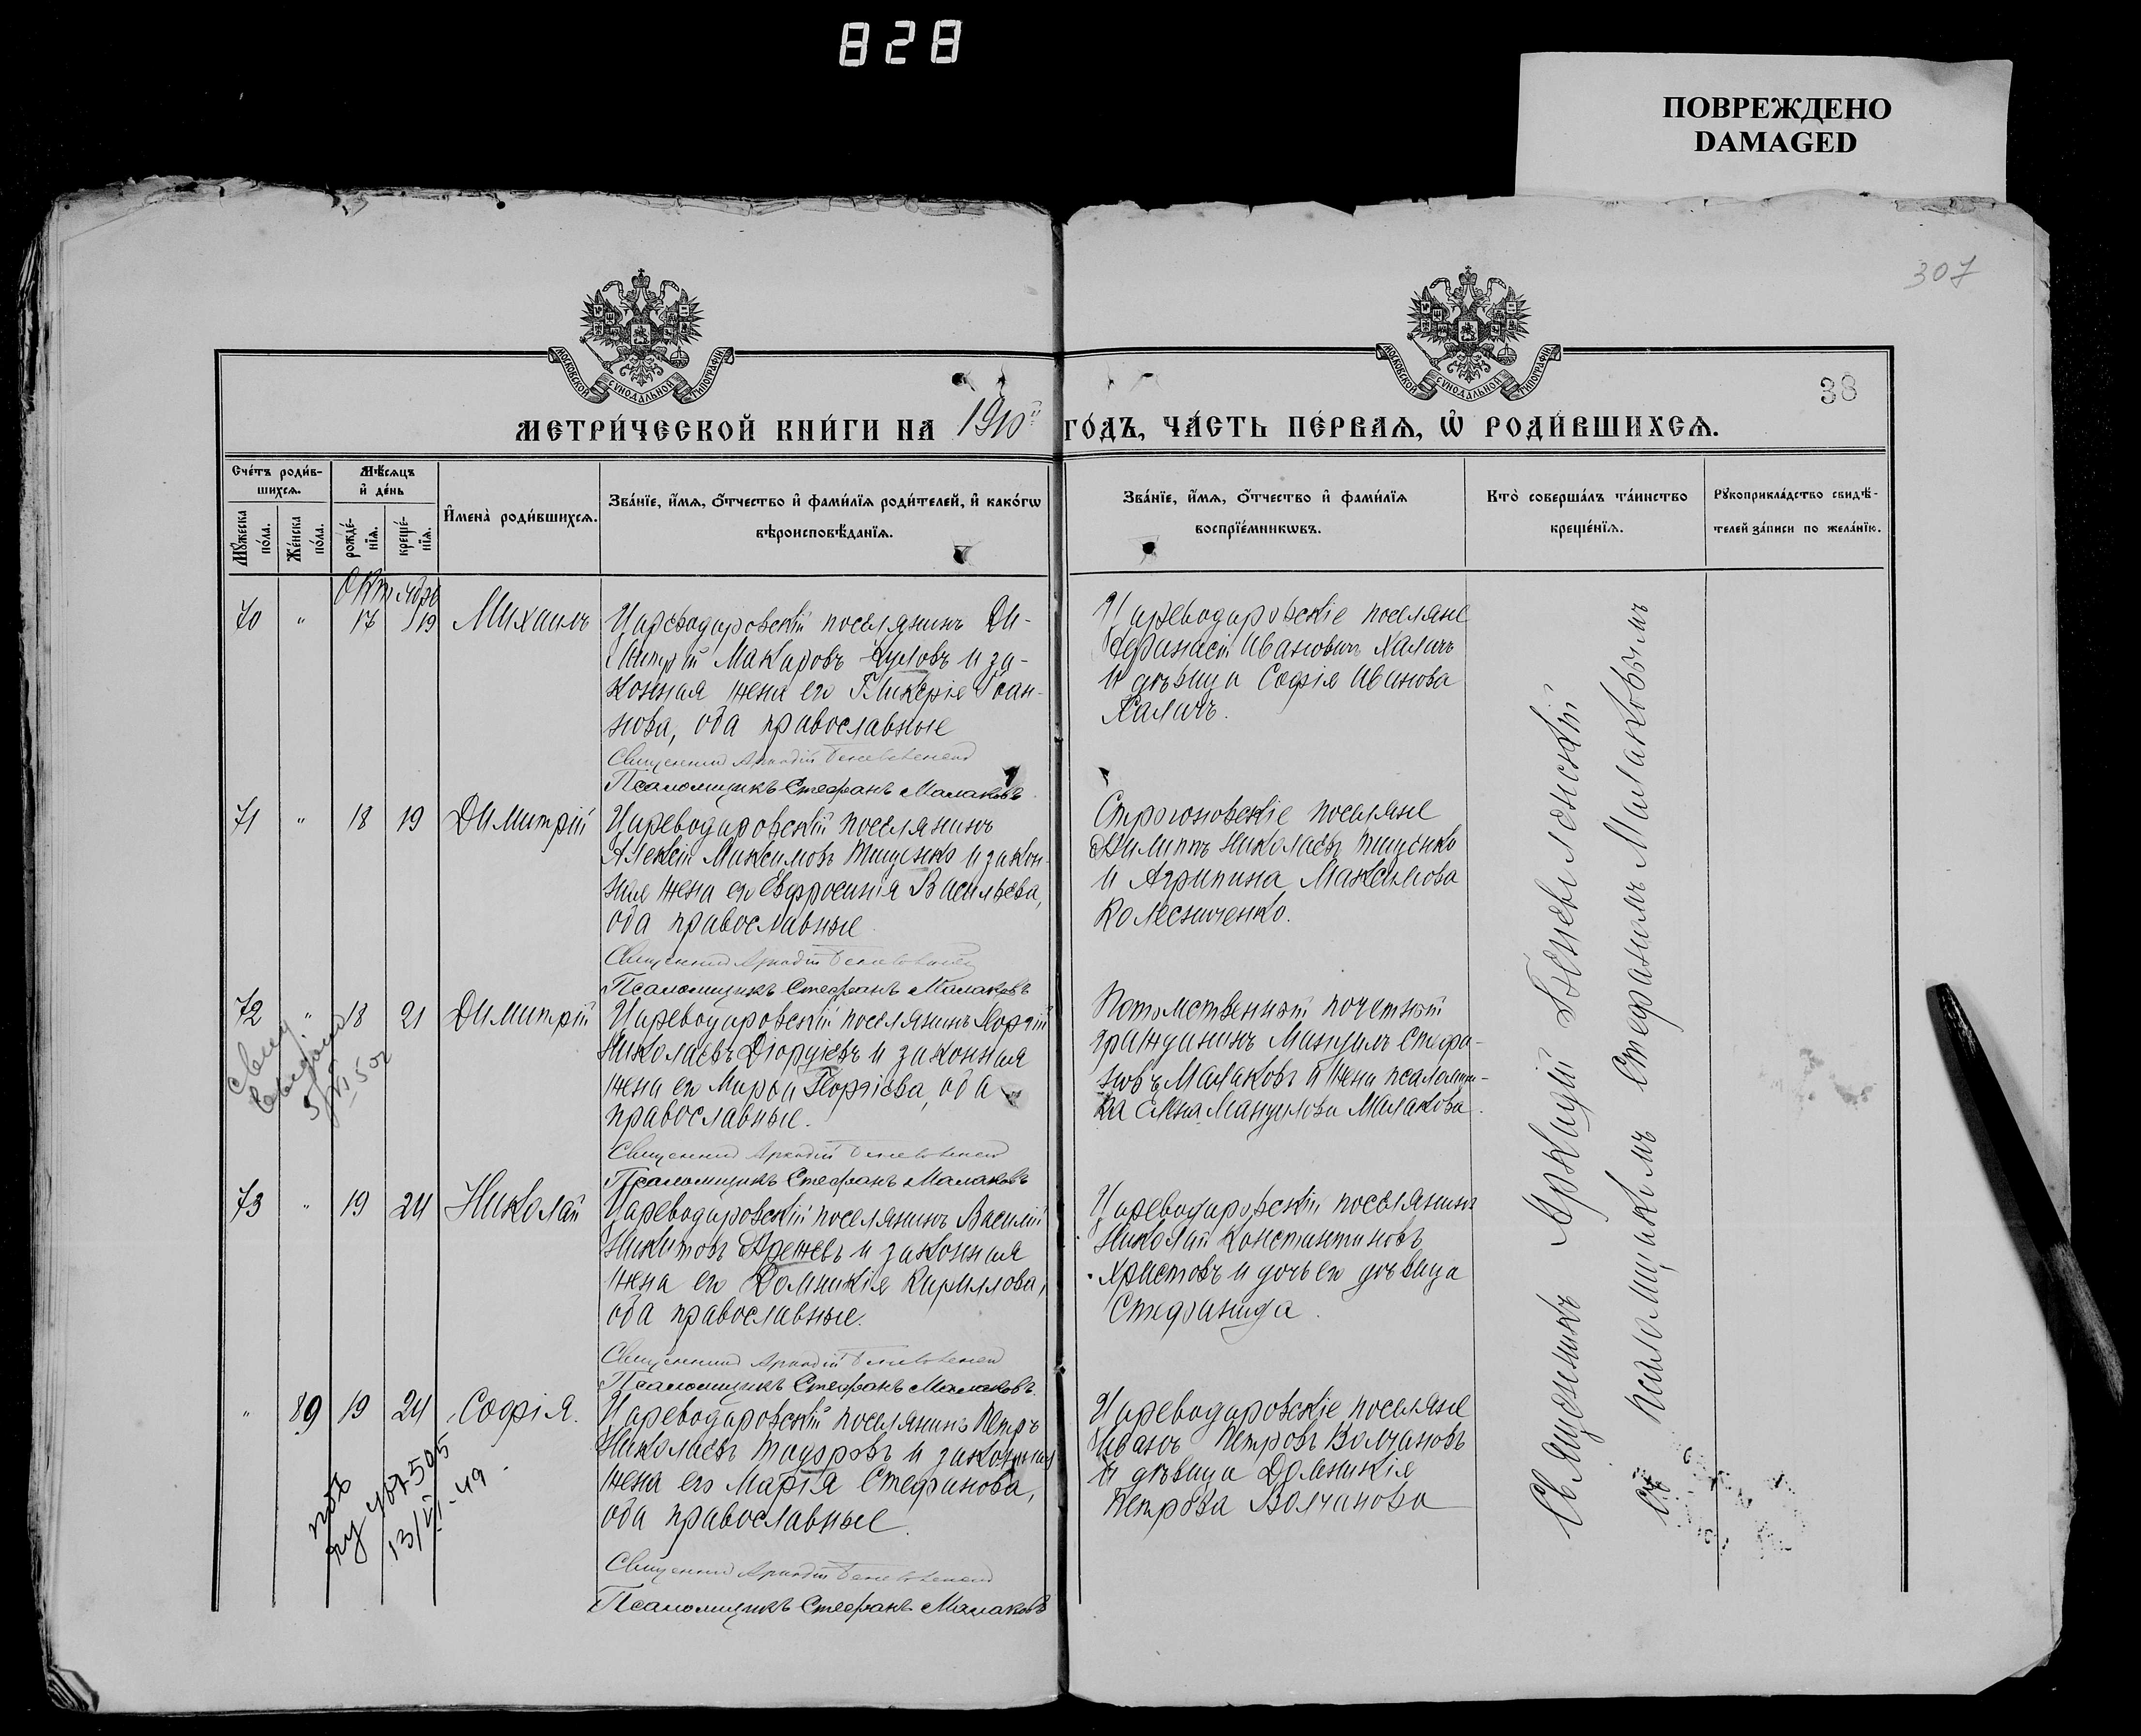 828
ПОВРЕЖДЕНО
DAMAGED
307
38
МОСКОВСКОЙ СѴНОДАЛЬНОЙ ТИПОГРАФІИ
МОСКОВСКОЙ СѴНОДАЛЬНОЙ ТИПОГРАФІИ
МЕТРИ́ЧЕСКОЙ КНИ́ГИ НА 1910й ГО́ДЪ, ЧА́СТЬ ПЕ́РВАѦ, Ѽ РОДИ́ВШИХСѦ.
Сче́тъ роди́в-
шихсѧ.
Мѣ́сяцъ
и҆ де́нь
Мꙋ́жеска по́ла.
Же́нска по́ла.
рожде́-
нїѧ.
креще́-
нїѧ.
И҆мена̀ роди́вшихсѧ.
Зва́нїе, и҆́мѧ, ѻ҆́тчество и҆ фами́лїѧ роди́телей, и҆ како́гѡ
вѣроисповѣ́данїѧ.
Зва́нїе, и҆́мѧ, ѻ҆́тчество и҆ фами́лїѧ
воспрїе́мникѡвъ.
Кто̀ соверша́лъ та́инство
креще́нїѧ.
Рꙋкоприкла́дство свидѣ́-
телей за́писи по жела́нїю.
Октября
70 " 17 19 Михаилъ
Цареводаровскій поселянинъ Ди-
митрій Макаровъ и за-
конная жена его Гликерія Іоан-
нова, оба православные
Священникъ Аркадій Беневоленскій
Псаломщикъ Стефанъ Малаковъ.
Цареводаровскіе поселяне
Афанасій Ивановичъ Халичъ
и дѣвица Софія Иванова
Халичъ.
71 " 18 19 Димитрій
Цареводаровскій поселянинъ
Алексій Максимовъ Тищенко и закон-
ная жена его Евфросинія Васильева,
оба православные.
Священникъ Аркадій Беневоленскій
Псаломщикъ Стефанъ Малаковъ
Строгоновскіе поселяне
Филиппъ Николаевъ Тищенко
и Агрипина Максимова
Колесниченко.
72 " 18 21 Димитрій
Цареводаровскій поселянинъ Георгій
Николаевъ Діордіевъ и законная
жена его Марфа Георгіева, оба
православные.
Священникъ Аркадій Беневоленскій
Псаломщикъ Стефанъ Малаковъ
Потомственный почетный
гражданинъ Мануилъ Стефа-
новъ Малаковъ и жена псаломщи-
ка Елена Мануилова Малакова.
73 " 19 24 Николай
Цареводаровскій поселянинъ Василій
Никитовъ и законная
жена его Домникія Кириллова,
оба православные.
Священникъ Аркадій Беневоленскій
Псаломщикъ Стефанъ Малаковъ.
Цареводаровскій поселянинъ
Николай Константиновъ
Христовъ и дочь его дѣвица
Стефанида.
" 89 19 24 Софія.
Цареводаровскій поселянинъ Петръ
Николаевъ Тодоровъ и законная
жена его Марія Стефанова,
оба православные.
Священникъ Аркадій Беневоленскій
Псаломщикъ Стефанъ Малаковъ
Цареводаровскіе поселяне
Иванъ Петровъ Волчановъ
и дѣвица Домникія
Петрова Волчанова
13/VI-49.
Священникъ Аркадій Беневоленскій
съ псаломщикомъ Стефаномъ Малаковымъ